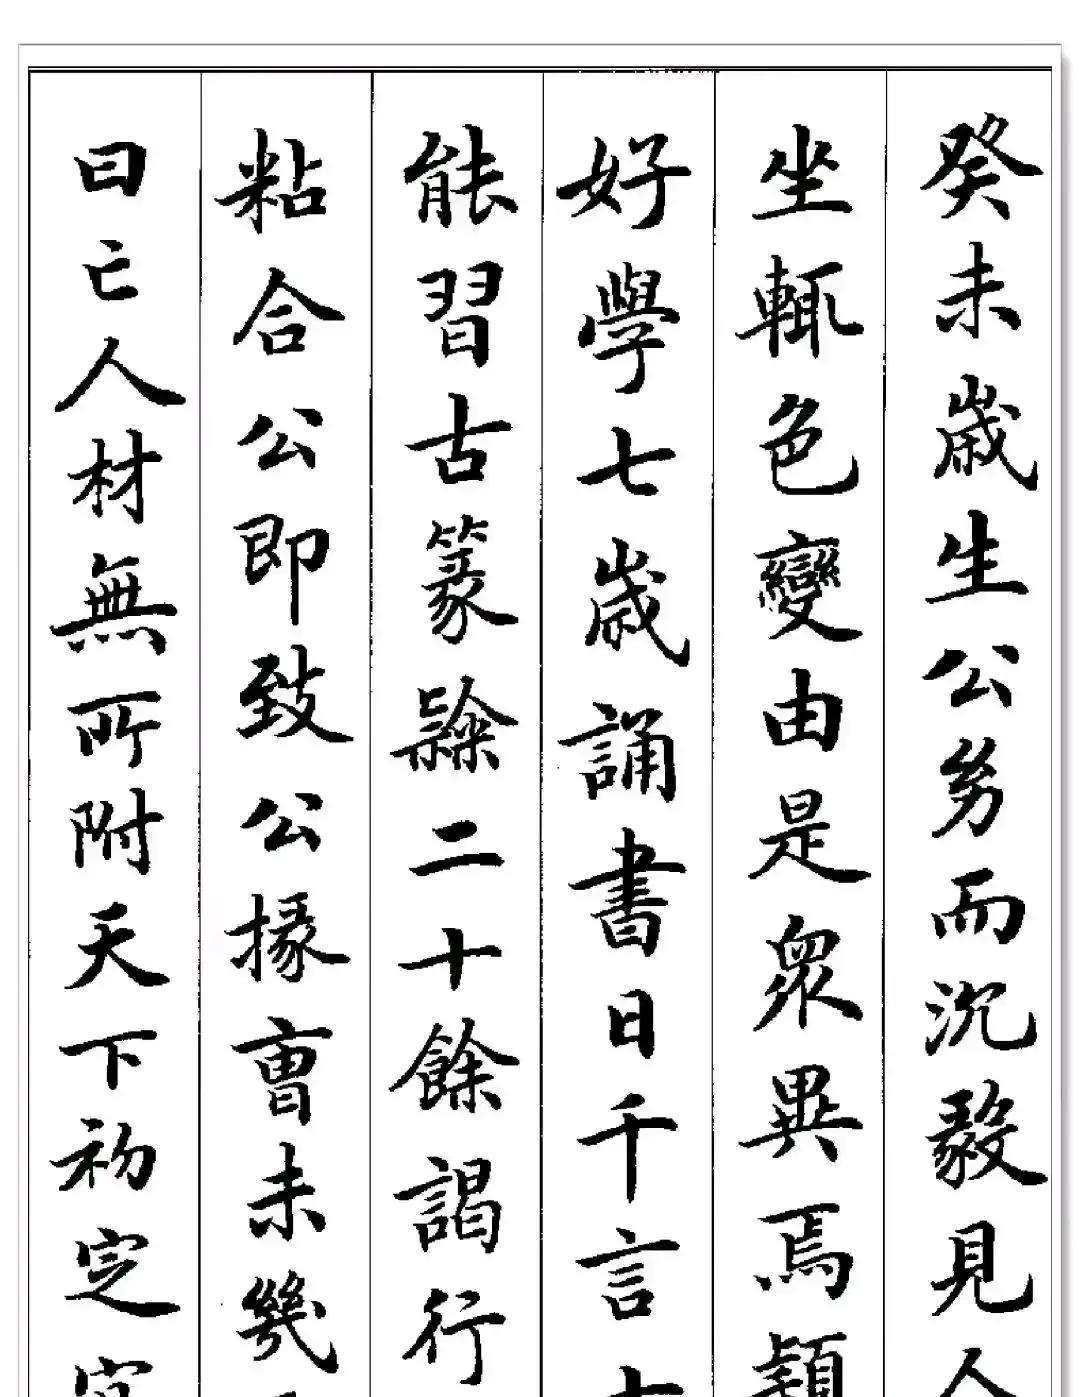 癸未歲生公㓜而沉毅見人
坐輙色變由是衆異焉穎
好學七歲誦書日千言十
能習古篆隸二十餘謁行
粘合公即致公掾曹未幾
曰亡人材無所附天下初定